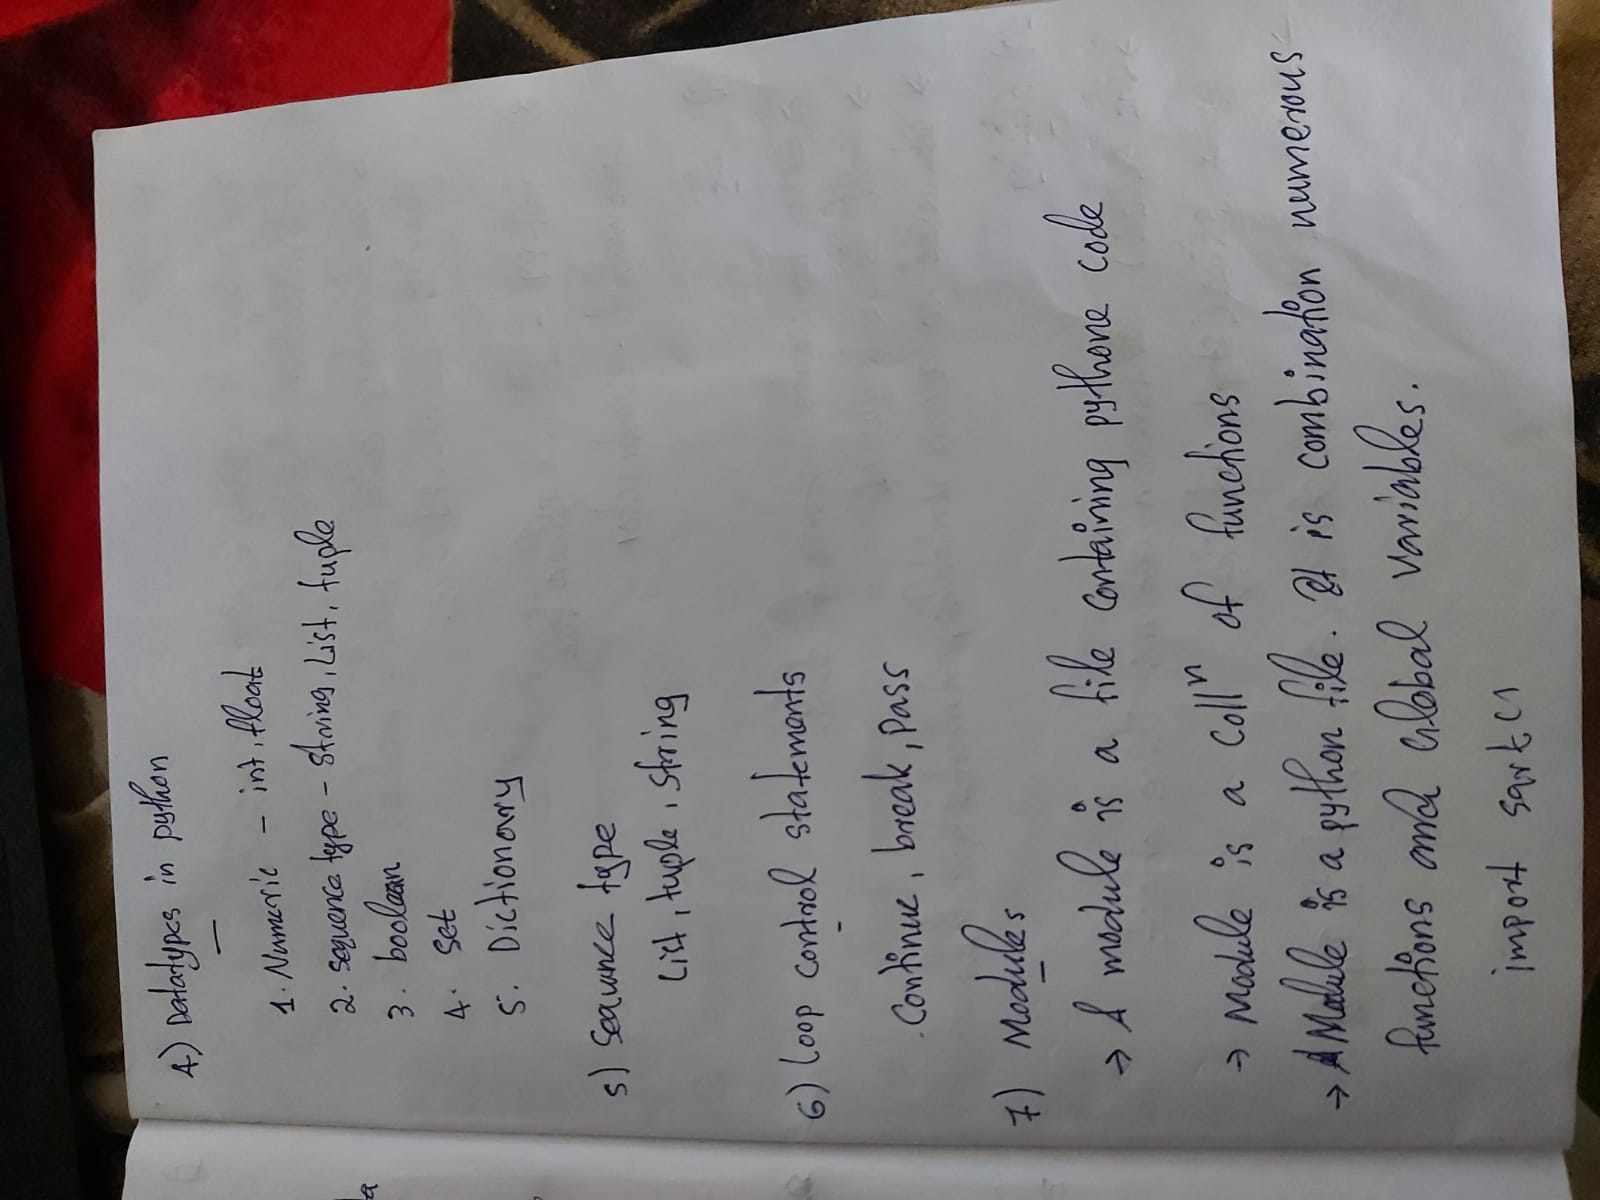 4) Datatypes in python
1. Numeric - int, float
2. sequence type - string, List, tuple
3. boolean
4. Set
5. Dictionary
5) Seaunce type
List, tuple, string
6) Loop control statements
Continue, break, pass
7) Modules
→ A module is a file containing pythone code
→ Module is a Collⁿ of functions
→ A Module is a python file. It is combination numerous
functions and Global variables.
import sqrt()